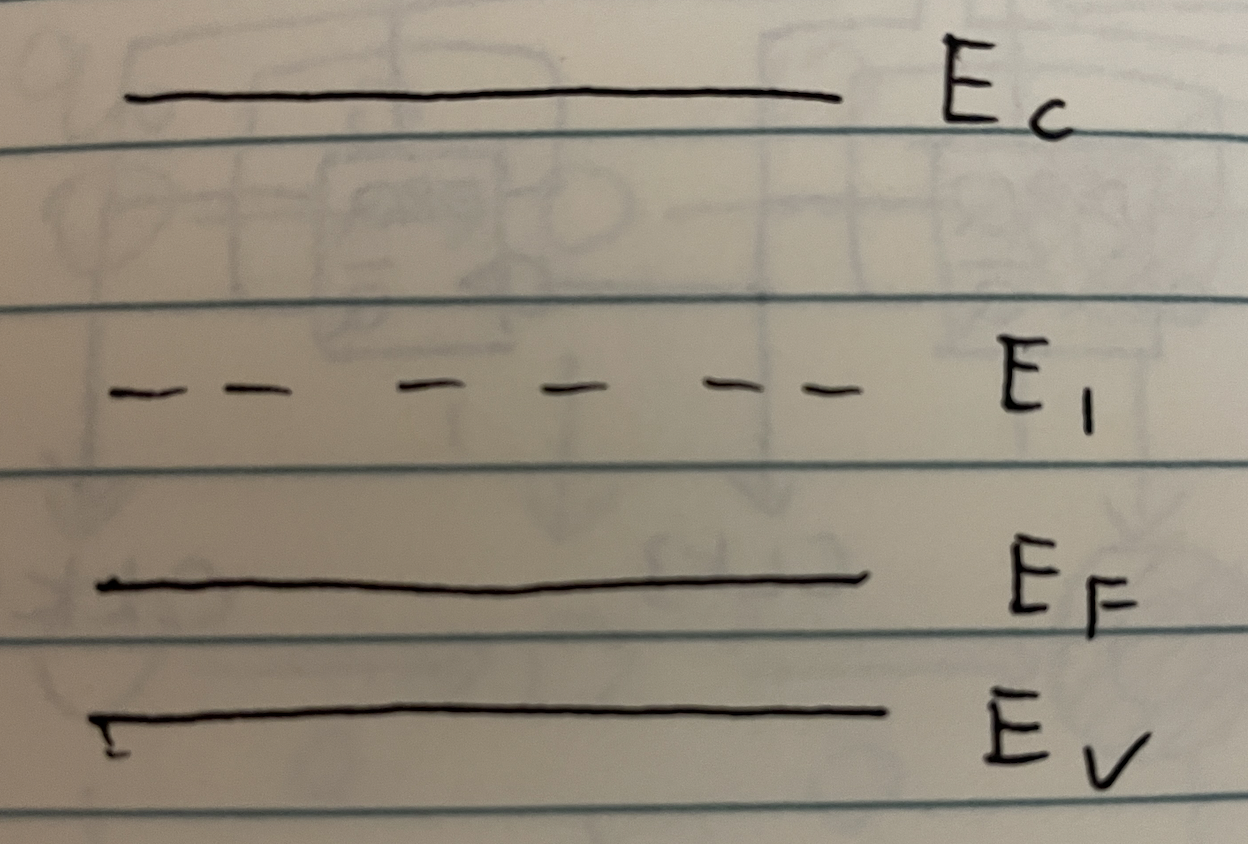 E_C
E_I
E_F
E_V